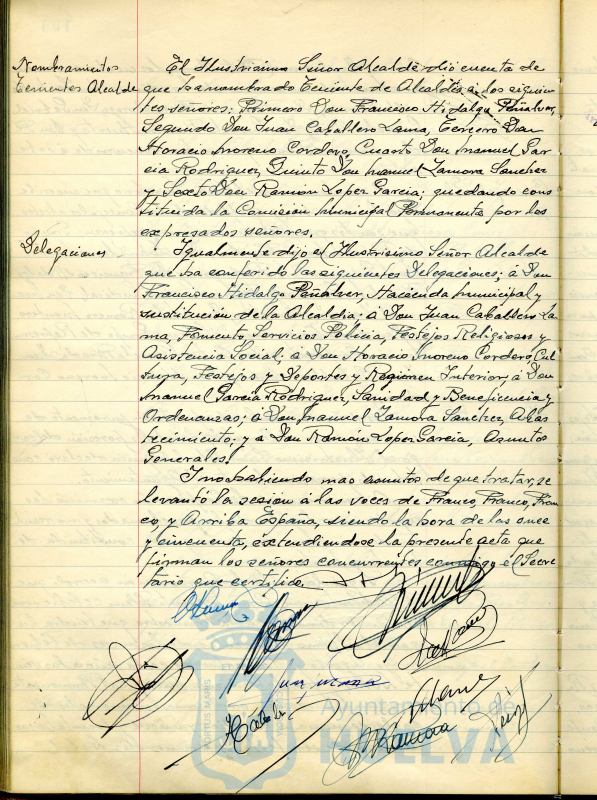 Nombramientos
Tenientes Alcalde
El Ilustrisimo Señor Alcalde dió cuenta de
que ha nombrado Teniente de Alcaldia a los siguien
tes señores: Primero Don Francisco Hidalgo Peñalver,
Segundo Don Juan Caballero Lama, Tercero Don
Horacio Moreno Cordero, Cuarto Don Manuel Gar
cia Rodriguez, Quinto Don Manuel Zamora Sanchez
y Sexto Don Ramon Lopez Garcia; quedando cons
tituida la Comisión Municipal Permanente por los
expresados señores.
Delegaciones
Igualmente dijo el Ilustrisimo Señor Alcalde
que ha conferido las siguientes Delegaciones; á Don
Francisco Hidalgo Peñalver, Hacienda Municipal y
sustitución de la Alcaldia; á Don Juan Caballero La
ma, Fomento, Servicios Policia, Festejos Religiosos y
Asistencia Social; á Don Horacio Moreno Cordero, Cul
tura, Festejos y Deportes y Regimen Interior; á Don
Manuel Garcia Rodriguez, Sanidad y Beneficencia y
Ordenanzas; á Don Manuel Zamora Sanchez, Abas
tecimiento; y a Don Ramón Lopez Garcia, Asuntos
Generales.
I no habiendo mas asuntos de que tratar, se
levantó la sesión á las voces de Franco, Franco, Fran
co, y Arriba España, siendo la hora de las once
y cincuenta, extendiendose la presente acta que
firman los señores concurrentes conmigo el Secre
tario que certifico.
PORTUS MARIS
Ayuntamiento de
HUELVA